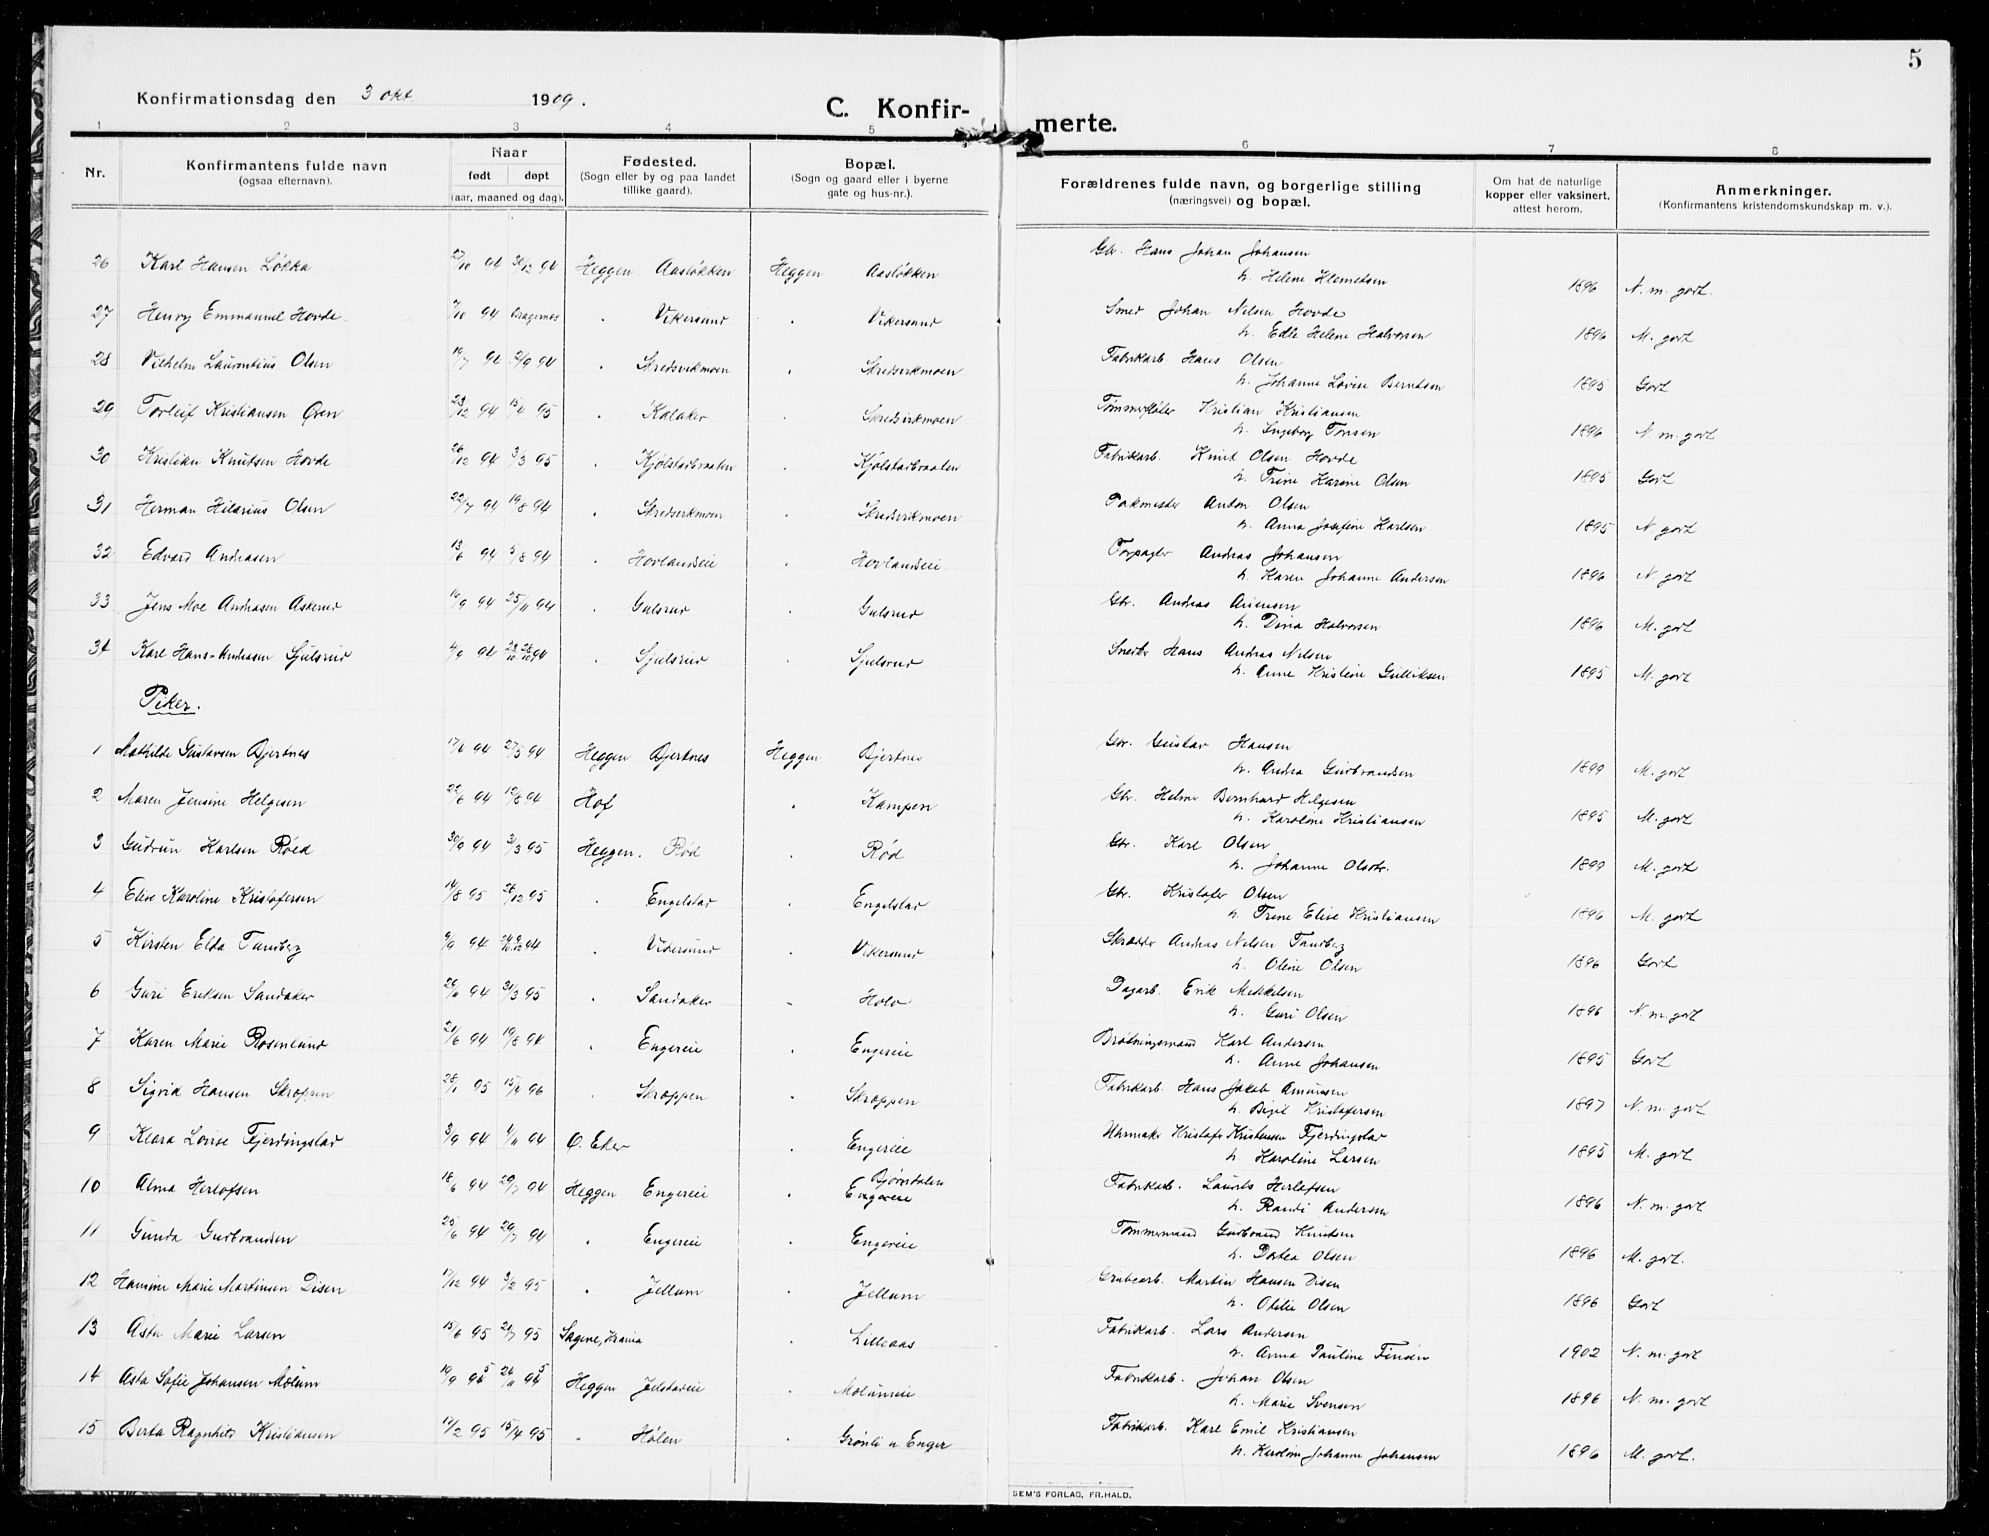 5
Konfirmationsdag den 3 okt 1909.
C. Konfir-
merte.
1 2 3 4 5 6 7 8
Nr.
Konfirmantens fulde navn
(ogsaa efternavn).
Naar
født døpt
(aar, maaned og dag).
Fødested.
(Sogn eller by og paa landet
tillike gaard).
Bopæl.
(Sogn og gaard eller i byerne
gate og hus-nr.).
Forældrenes fulde navn, og borgerlige stilling
(næringsvei) og bopæl.
Om hat de naturlige
kopper eller vaksinert,
attest herom.
Anmerkninger.
(Konfirmantens kristendomskundskap m. v.).
26 Karl Hansen Løkka 94 30/12 94 Heggen Aasløkken Heggen Aasløkken Gbr. Hans Johan Johansen
h. Helene Klemetsen 1896 N. m. godt.
27 Henry Emmanuel Hovde 7/10 94 Bragernes " Vikersund " Vikersund Smed Johan Nilsen Hovde
h. Edle Helene Halvorsen 1896 M. godt
28 Vilhelm Laurentius Olsen 19/7 94 2/9 94 " Skredsvikmoen " Skredsvikmoen Fabrikarb. Hans Olsen
h. Johanne Lovise Berntsen 1895 Godt
29 Torleif Kristiansen Øren 23/12 94 15/4 95 " Kalaker " Skredsvikmoen Tømmerfløter Kristian Kristiansen
h. Ingeborg Tonsen 1896 N. m. godt
30 Kristian Knutsen Hovde 26/12 94 3/3 95 " Kjølstadbraaten " Kjølstadbraaten Fabrikarb. Knut Olsen Hovde
h. Trine Karine Olsen 1895 Godt
31 Herman Hilarius Olsen 22/7 94 19/8 94 " Skredsvikmoen " Skredsvikmoen Pakmester Anton Olsen
h. Anna Josefine Karlsen 1895 N godt
32 Edvard Andreasen 13/6 94 5/8 94 " Hovlandseie " Hovlandseie Forpagter Andreas Johansen
h. Karen Johanne Andersen 1896 N. godt
33 Jens Moe Andreasen Askerud 16/9 94 25/11 94 " Gulsrud " Gulsrud Gbr. Andreas
h. Dina Halvorsen 1896 M. godt
34 Karl Hans-Andreasen Sjulsrud 4/9 94 23/10 28/10 94 " Sjulsrud " Sjulsrud Hans Andreas Nilsen
h. Anne Kristine Gulliksen 1895 M. godt
Piker.
1 Mathilde Gustavsen Bjertnes 17/4 94 27/5 94 Heggen Bjertnes Heggen Bjertnes Gbr. Gustav Hansen
h. Andrea Gudbrandsen 1899 M. godt
2 Maren Jensine Helgesen 22/6 94 12/8 94 Hof " Kampen Gbr. Helmer Bernhard Helgesen
h. Karoline Kristiansen 1895 M. godt
3 Gudrun Karlsen Røed 30/9 94 31/3 95 Heggen. Rød " Rød Gbr. Karl Olsen
h. Johanne Olsdtr. 1899 M. godt
4 Elise Karoline Kristofersen 14/8 95 26/12 95 " Engelstad " Engelstad Gbr. Kristofer Olsen
h. Trine Elise Kristiansen 1896 M. godt
5 Kirsten Elda Tandberg 9/9 94 94 " Vikersund " Vikersund Skrædder Andreas Nilsen Tandberg
h. Oline Olsen 1896 Godt
6 Guri Eriksen Sandaker 29/11 94 31/3 95 " Sandaker " Holo Dagarb. Erik Mikkelsen
h. Guri Olsen 1896 N. m. godt
7 Karen Marie Rosenlund 21/6 94 19/8 94 " Engereie " Engereie Brøtningsmand Karl Andersen
h. Anne Johansen 1895 Godt
8 Sigrid Hansen Skroppen 28/1 95 15/4 96 " Skroppen " Skroppen Fabrikarb. Hans Jakob Amundsen
h. Birgit Kristofersen 1897 N. m. godt
9 Klara Lovise Fjerdingstad 3/9 94 4/11 94 Ø. Eker " Engereie Uhrmaker Kristofer Kristensen Fjerdingstad
h. Karoline Larsen 1895 M. godt
10 Alma Herlofsen 18/6 94 29/7 94 Heggen Engereie " Bjørndalen
Engereie Fabrikarb. Laurits Herlofsen
h. Randi Andersen 1896 N. m. godt
11 Gunda Gudbrandsen 25/6 94 29/7 94 " Engereie " Engereie Tømmermand Gudbrand Knutsen
h. Dortea Olsen 1896 M. godt.
12 Hansine Marie Martinsen Disen 17/12 94 3/2 95 " Jellum " Jellum Grubearb. Martin Hansen Disen
h. Otilie Olsen 1896 Godt
13 Asta Marie Larsen 15/6 95 21/7 95 Sagene, Krania " Lilleaas Fabrikarb. Lars Andersen
h. Anna Pauline Finsen 1902 N. m. godt
14 Asta Sofie Johansen Molum 19/9 95 24/11 95 Heggen Jelstadeie " Molumeie Fabrikarb. Johan Olsen
h. Marie Svensen 1896 N. m. godt
15 Berta Ragnhild Kristiansen 17/2 95 15/4 95 " Hølen " Grønli u. Enger Fabrikarb. Karl Emil Kristiansen
h. Karoline Johanne Johansen 1896 M. godt.
SEM'S FORLAG, FR.HALD.